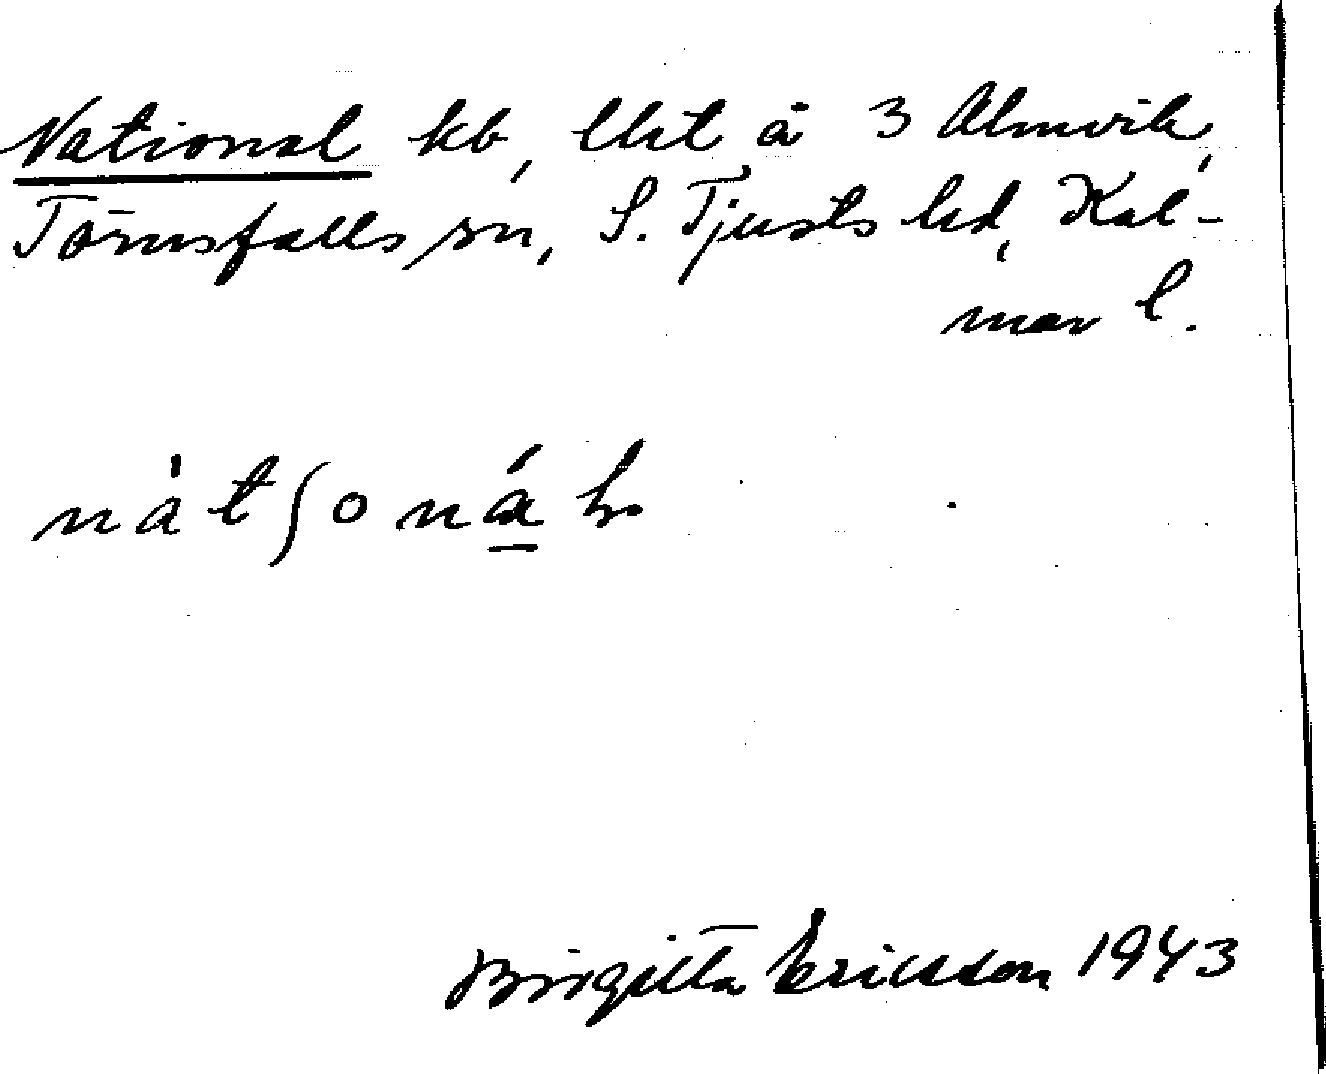 National kb, lht å 3 Almvik,
Törnsfalls sn, S. Tjusts hd, Kal-
mar l.
nàtʃonáḷ
Birgitta Ericsson 1943